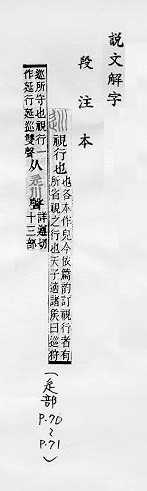 說文解字
段注本
視行也
也各本作皃今依篇韵訂視行者有
所省視之行也天子適諸矦曰巡狩
巡所守也視行一
作延行延巡雙聲
从川聲
詳遵切
十三部
(辵部
P.70
~
P.71)